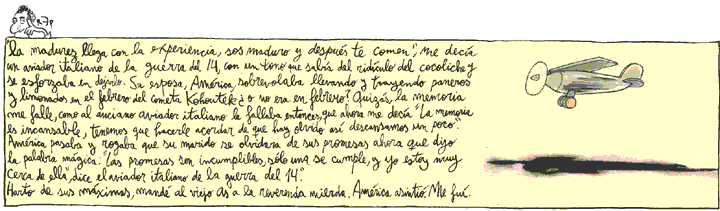 R7P
"la madurez llega con la experiencia, sos maduro y después te comen", me decía
un aviador italiano de la guerra del 14, con un tono que salía del ridículo del cocoliche y
se esforzaba en dejarlo. Su esposa, América, sobrevolaba llevando y trayendo pareros
y limonadas en el febrero del cometa Kohoutek ¿o no era en febrero? Quizás, la memoria
me falle, como al anciano aviador italiano le fallaba entonces, que ahora me decía "La memoria
es incansable, tenemos que hacerle acordar de que hay olvido así descansamos un poco".
América pasaba y rogaba que su marido se olvidara de sus promesas ahora que dijo
la palabra mágica: "Las promesas son incumplibles, sólo una se cumple, y yo estoy muy
cerca de ella", dice el aviador italiano de la guerra del 14.
Harto de sus máximas, mandé al viejo As a la reverenda mierda. América asintió. Me fui.